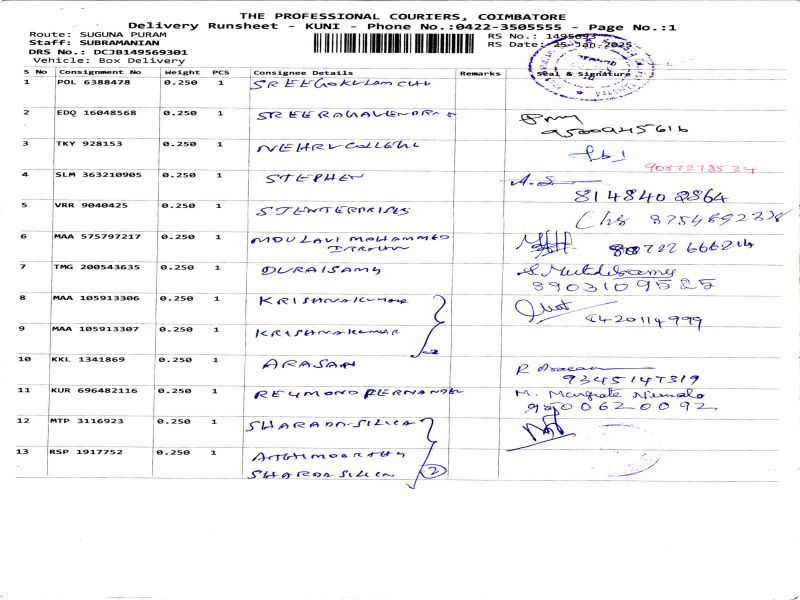 THE PROFESSIONAL COURIERS, COIMBATORE
Delivery Runsheet - KUNI - Phone No.:0422-3505555 - Page No.:1
Route: SUGUNA PURAM
RS No.: 1495693
Staff: SUBRAMANIAN
RS Date: 25-Jan-2025
DRS No.: DCJB149569301
Vehicle: Box Delivery
S No Consignment No Weight PCS Consignee Details Remarks Seal & Signature
1 POL 6388478 0.250 1 SREEGOKULAM CHI
2 EDQ 16048568 0.250 1 SREERAGAVENDRA 9500945616
3 TKY 928153 0.250 1 NEHRU COLLEGE
4 SLM 363210905 0.250 1 STEPHEN 8148402864
5 VRR 9040425 0.250 1 STENTERPRISES
6 MAA 575797217 0.250 1 MOULAVI MOHAMMED
7 TMG 200543635 0.250 1 DURAISAMY 8903109525
8 MAA 105913306 0.250 1 KRISHNAKUMAR
9 MAA 105913307 0.250 1 KRISHNAKUMAR
10 KKL 1341869 0.250 1 ARASAN 9345147319
11 KUR 696482116 0.250 1 REYMOND FERNANDEZ M. Margrate Nirmala
9500620092
12 MTP 3116923 0.250 1 SHARADA
13 RSP 1917752 0.250 1
SHARADA 2